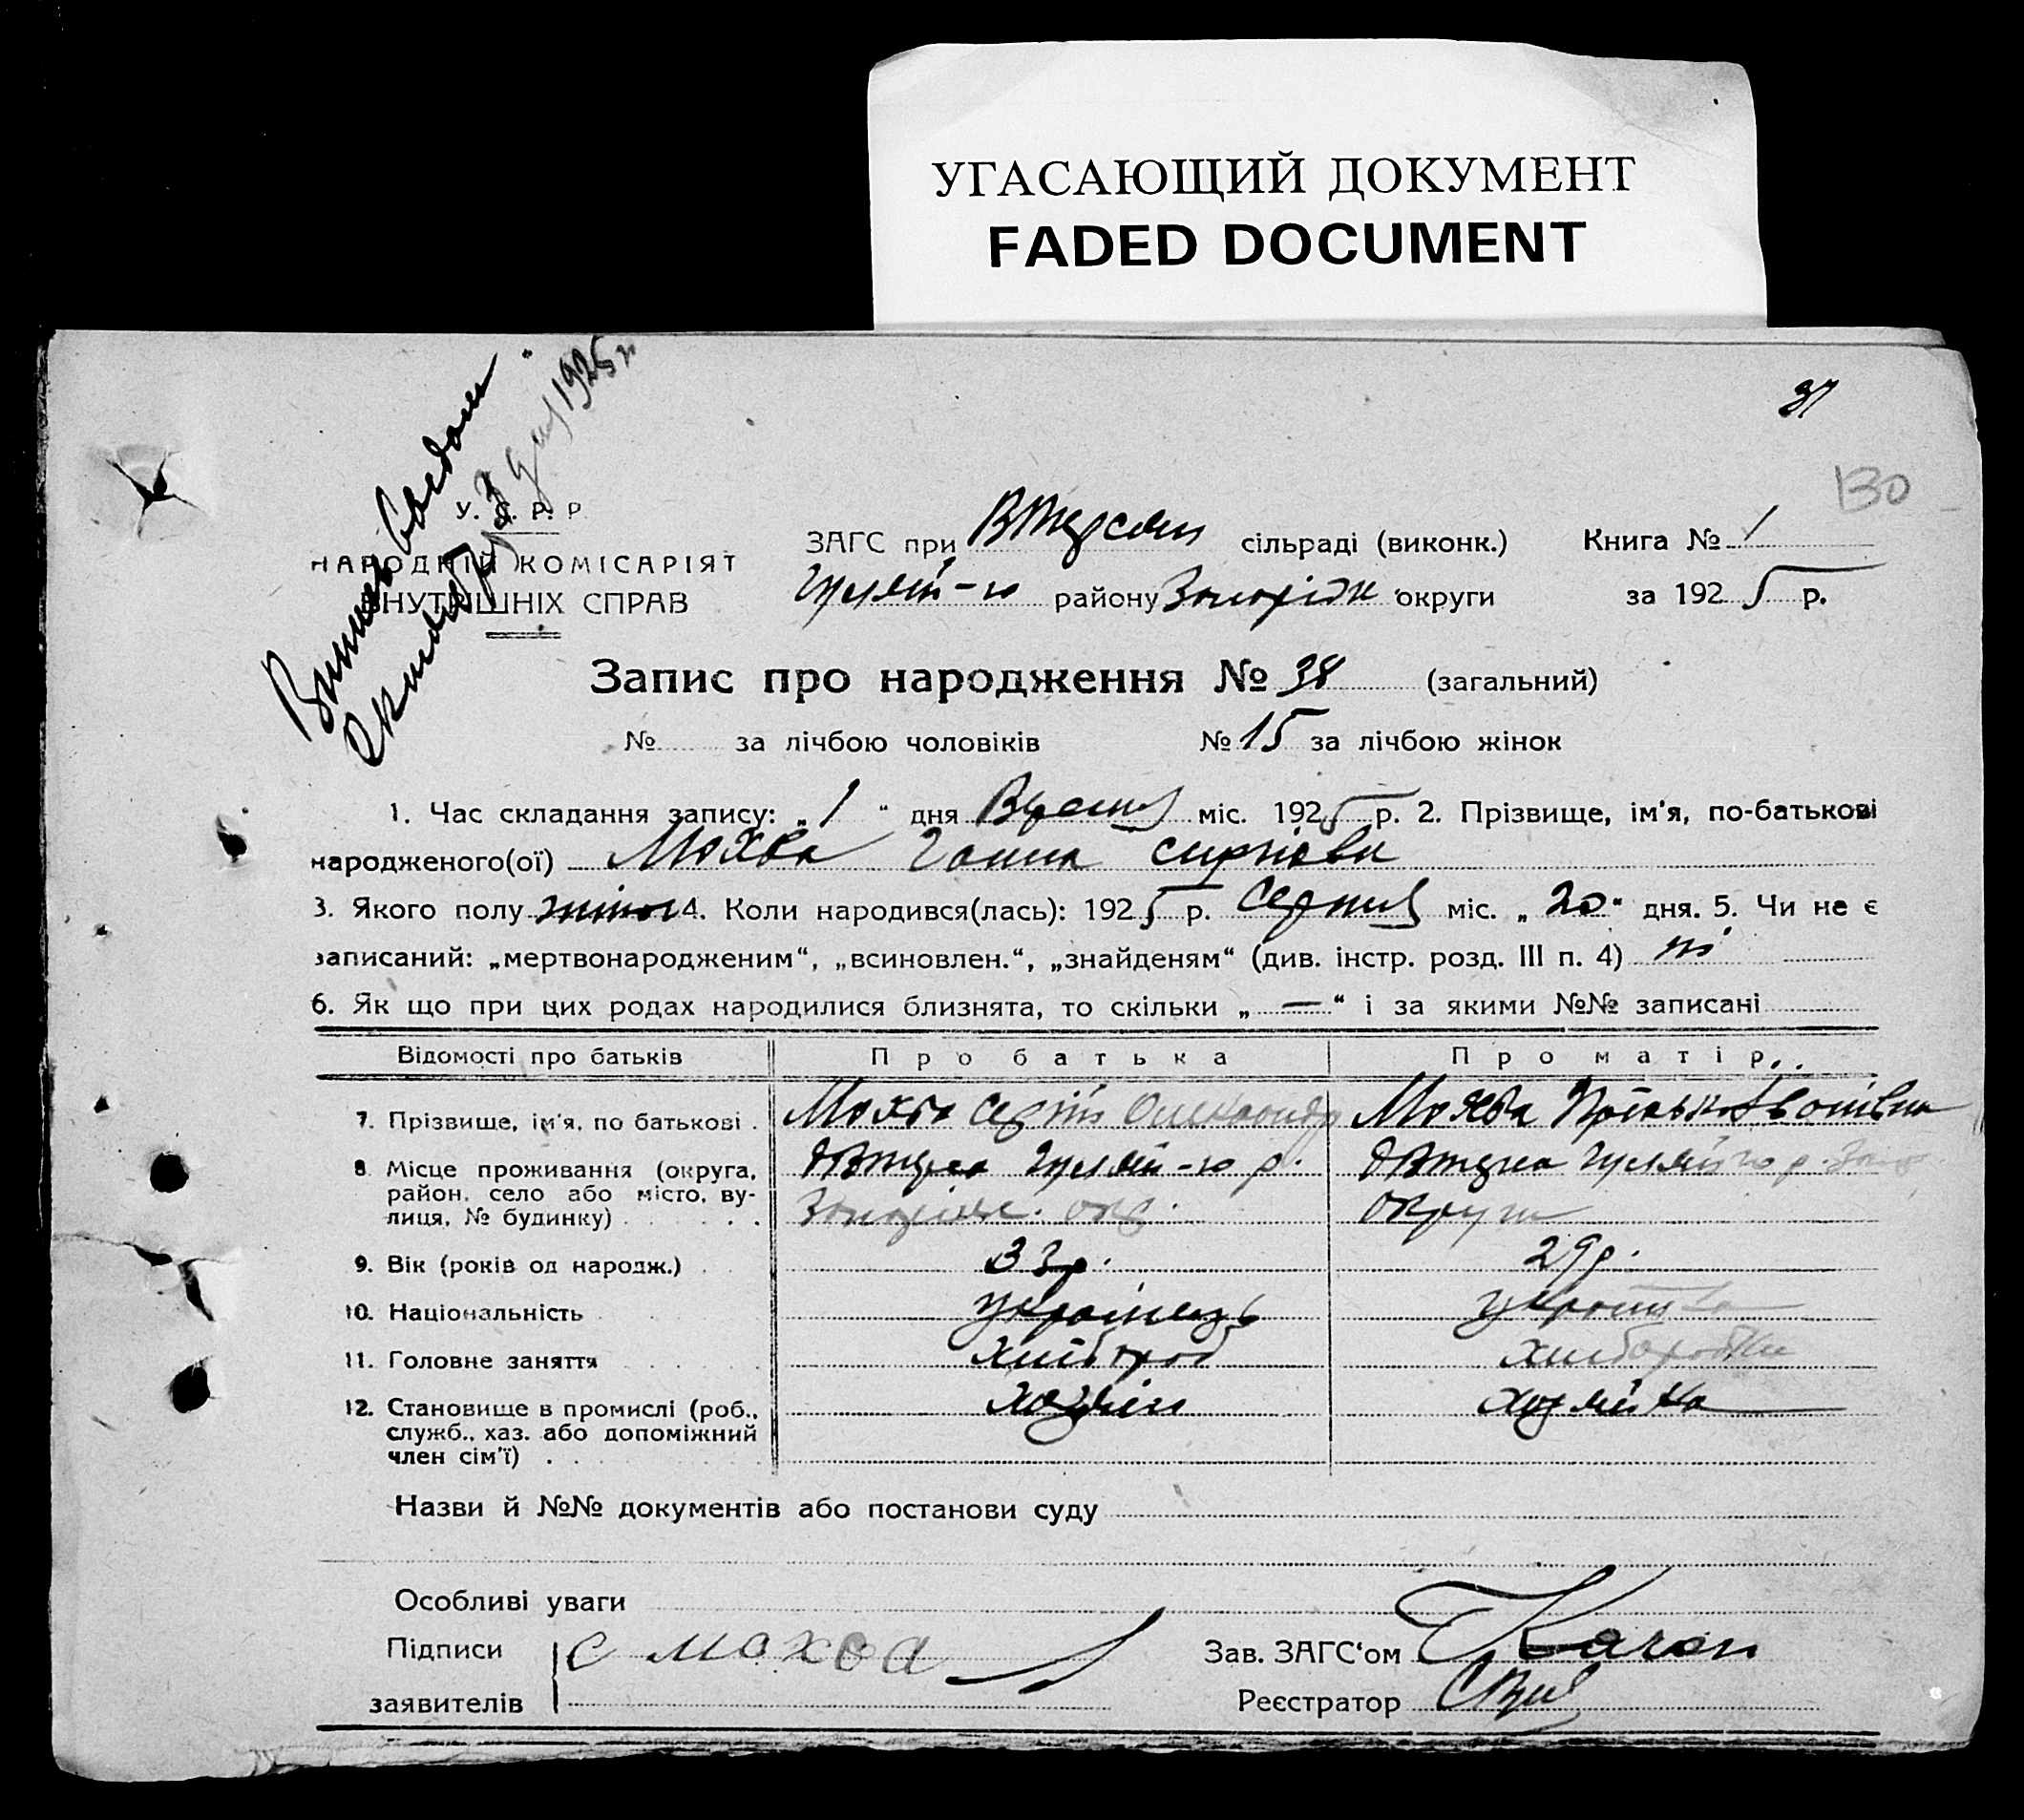 УГАСАЮЩИЙ ДОКУМЕНТ
FADED DOCUMENT
31
130
1925
У. С. Р. Р.
НАРОДНІЙ КОМІСАРІЯТ
ВНУТРІШНІХ СПРАВ
ЗАГС при сільраді (виконк.) Книга № 1
Гуляй-ю району Запоріж округи за 1925 р.
Запис про народження № 38 (загальний)
№ за лічбою чоловіків № 15 за лічбою жінок
1. Час складання запису: „1“ дня міс. 1925 р. 2. Прізвище, ім'я, по-батькові
народженого(ої) Мохва Ганна
3. Якого полу жіноч 4. Коли народився(лась): 1925 р. Серпня міс. „20“ дня. 5. Чи не є
записаний: „мертвонародженим“, „всиновлен.“, „знайденям“ (див. інстр. розд. III п. 4) ні
6. Як що при цих родах народилися близнята, то скільки „—“ і за якими №№ записані
Відомості про батьків Про батька Про матір
7. Прізвище, ім'я, по батькові Мохва Сергій Олександр Мохва
8. Місце проживання (округа, Гуляй-ю р. Гуляй ю р.
район, село або місто, ву- Запоріж. окр. округи
лиця, № будинку)
9. Вік (років од народж.) 33 р. 29 р.
10. Національність українець українка
11. Головне заняття хлібороб хліборобка
12. Становище в промислі (роб., хазяїн хазяйка
служб., хаз. або допоміжний
член сім'ї)
Назви й №№ документів або постанови суду
Особливі уваги
Підписи С Мохва Зав. ЗАГС'ом
заявителів Реєстратор